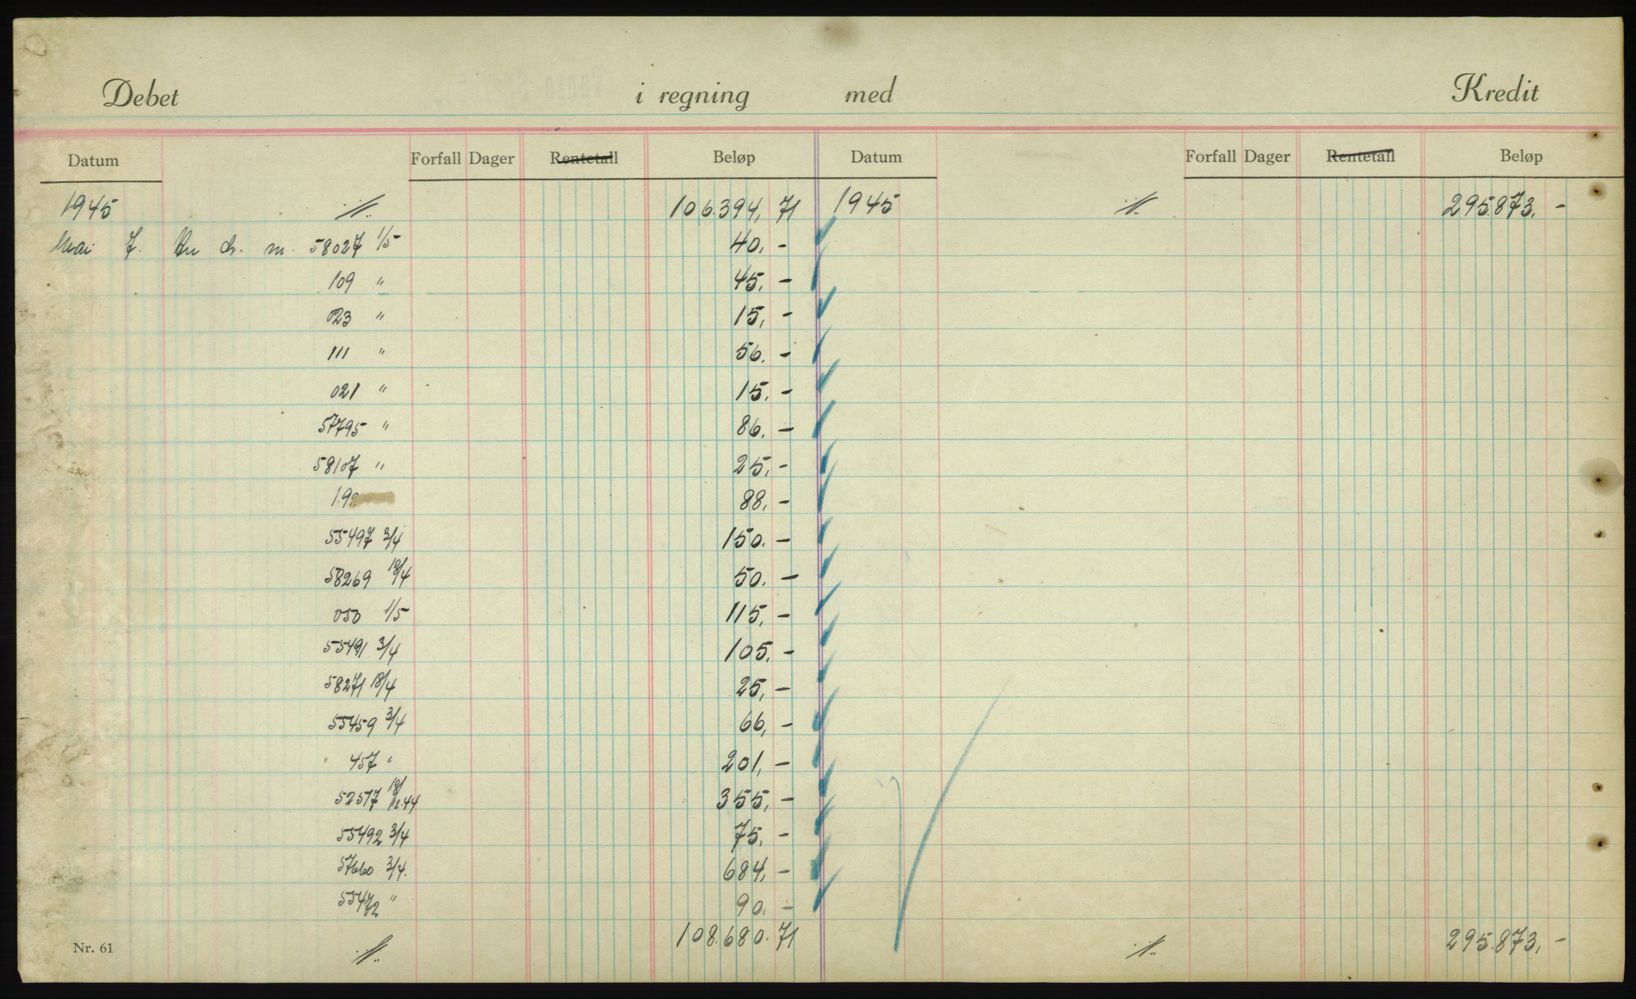 Debet i regning med Kredit
Datum Forfall Dager Rentetall Beløp Datum Forfall Dager Rentetall Beløp
1945 106.394,71 1945 295.873,-
Mai 7. An ch. nr. 58027 1/5 40,-
109 " 45,-
023 " 15,-
111 " 56,-
021 " 15,-
57795 " 86,-
58107 " 25,-
88,-
55497 3/4 150,-
58269 18/4 50,-
030 1/5 115,-
55491 3/4 105,-
58271 18/4 25,-
55459 3/4 66,-
457 " 201,-
52517 355,-
55492 3/4 75,-
57660 3/4 684,-
55472 " 90,-
108.680.71 295.873,-
Nr. 61